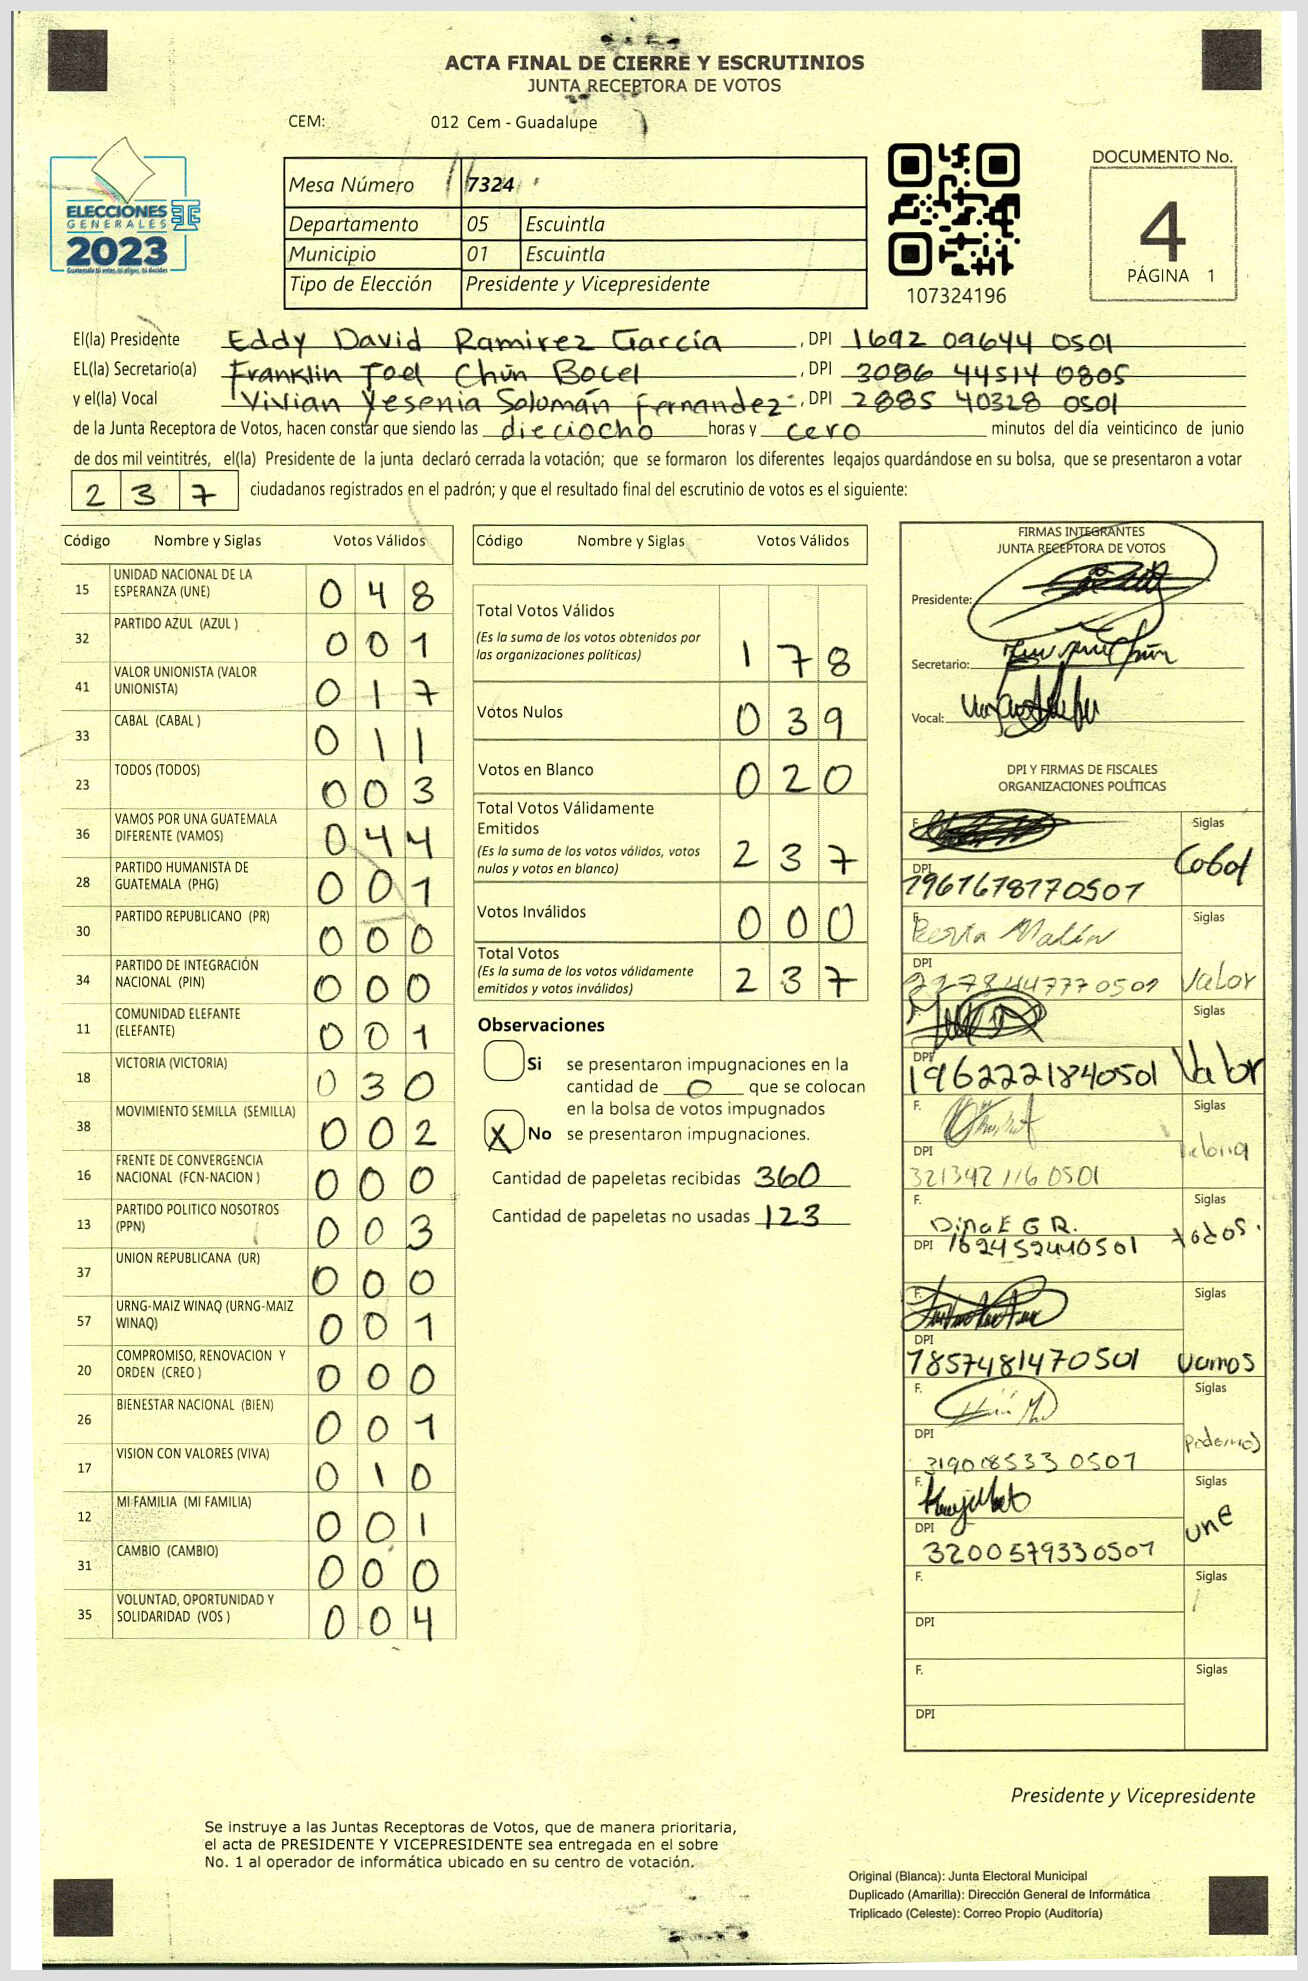 ACTA FINAL DE CIERRE Y ESCRUTINIOS
JUNTA RECEPTORA DE VOTOS
CEM: 012 Cem - Guadalupe
ELECCIONES
GENERALES
2023
Mesa Número 7324
Departamento 05 Escuintla
Municipio 01 Escuintla
Tipo de Elección Presidente y Vicepresidente
107324196
DOCUMENTO No.
4
PÁGINA 1
El(la) Presidente Eddy David Ramirez García, DPI 1692 09644 0501
EL(la) Secretario(a) Franklin Joel Chún Bocel, DPI 3086 44514 0805
y el(la) Vocal Vivian Yesenia Solomán Fernandez, DPI 2885 40328 0501
de la Junta Receptora de Votos, hacen constar que siendo las dieciocho horas y cero minutos del día veinticinco de junio
de dos mil veintitrés, el(la) Presidente de la junta declaró cerrada la votación; que se formaron los diferentes legajos guardándose en su bolsa, que se presentaron a votar
237 ciudadanos registrados en el padrón; y que el resultado final del escrutinio de votos es el siguiente:
Código Nombre y Siglas Votos Válidos
15 UNIDAD NACIONAL DE LA ESPERANZA (UNE) 048
32 PARTIDO AZUL (AZUL ) 001
41 VALOR UNIONISTA (VALOR UNIONISTA) 017
33 CABAL (CABAL ) 011
23 TODOS (TODOS) 003
36 VAMOS POR UNA GUATEMALA DIFERENTE (VAMOS) 044
28 PARTIDO HUMANISTA DE GUATEMALA (PHG) 001
30 PARTIDO REPUBLICANO (PR) 000
34 PARTIDO DE INTEGRACIÓN NACIONAL (PIN) 000
11 COMUNIDAD ELEFANTE (ELEFANTE) 001
18 VICTORIA (VICTORIA) 030
38 MOVIMIENTO SEMILLA (SEMILLA) 002
16 FRENTE DE CONVERGENCIA NACIONAL (FCN-NACION ) 000
13 PARTIDO POLITICO NOSOTROS (PPN) 003
37 UNION REPUBLICANA (UR) 000
57 URNG-MAIZ WINAQ (URNG-MAIZ WINAQ) 001
20 COMPROMISO, RENOVACION Y ORDEN (CREO ) 000
26 BIENESTAR NACIONAL (BIEN) 001
17 VISION CON VALORES (VIVA) 010
12 MI FAMILIA (MI FAMILIA) 001
31 CAMBIO (CAMBIO) 000
35 VOLUNTAD, OPORTUNIDAD Y SOLIDARIDAD (VOS ) 004
Código Nombre y Siglas Votos Válidos
Total Votos Válidos
(Es la suma de los votos obtenidos por
las organizaciones políticas) 178
Votos Nulos 039
Votos en Blanco 020
Total Votos Válidamente
Emitidos
(Es la suma de los votos válidos, votos
nulos y votos en blanco) 237
Votos Inválidos 000
Total Votos
(Es la suma de los votos válidamente
emitidos y votos inválidos) 237
Observaciones
Si se presentaron impugnaciones en la
cantidad de 0 que se colocan
en la bolsa de votos impugnados
X No se presentaron impugnaciones.
Cantidad de papeletas recibidas 360
Cantidad de papeletas no usadas 123
FIRMAS INTEGRANTES
JUNTA RECEPTORA DE VOTOS
Presidente:
Secretario:
Vocal:
DPI Y FIRMAS DE FISCALES
ORGANIZACIONES POLÍTICAS
F. Siglas Cabal
DPI 1961678770501
F. Berta Siglas Valor
DPI
F. Siglas Valor
DPI 1962221840501
F. Siglas
DPI 321392116 0501
F. Dina E G R. Siglas todos.
DPI 162452440501
F. Siglas Vamos
DPI 1857481470501
F. Siglas Podemos
DPI 319018533 0501
F. Siglas une
DPI 3200579330501
F. Siglas
DPI
F. Siglas
DPI
Presidente y Vicepresidente
Se instruye a las Juntas Receptoras de Votos, que de manera prioritaria,
el acta de PRESIDENTE Y VICEPRESIDENTE sea entregada en el sobre
No. 1 al operador de informática ubicado en su centro de votación.
Original (Blanca): Junta Electoral Municipal
Duplicado (Amarilla): Dirección General de Informática
Triplicado (Celeste): Correo Propio (Auditoría)